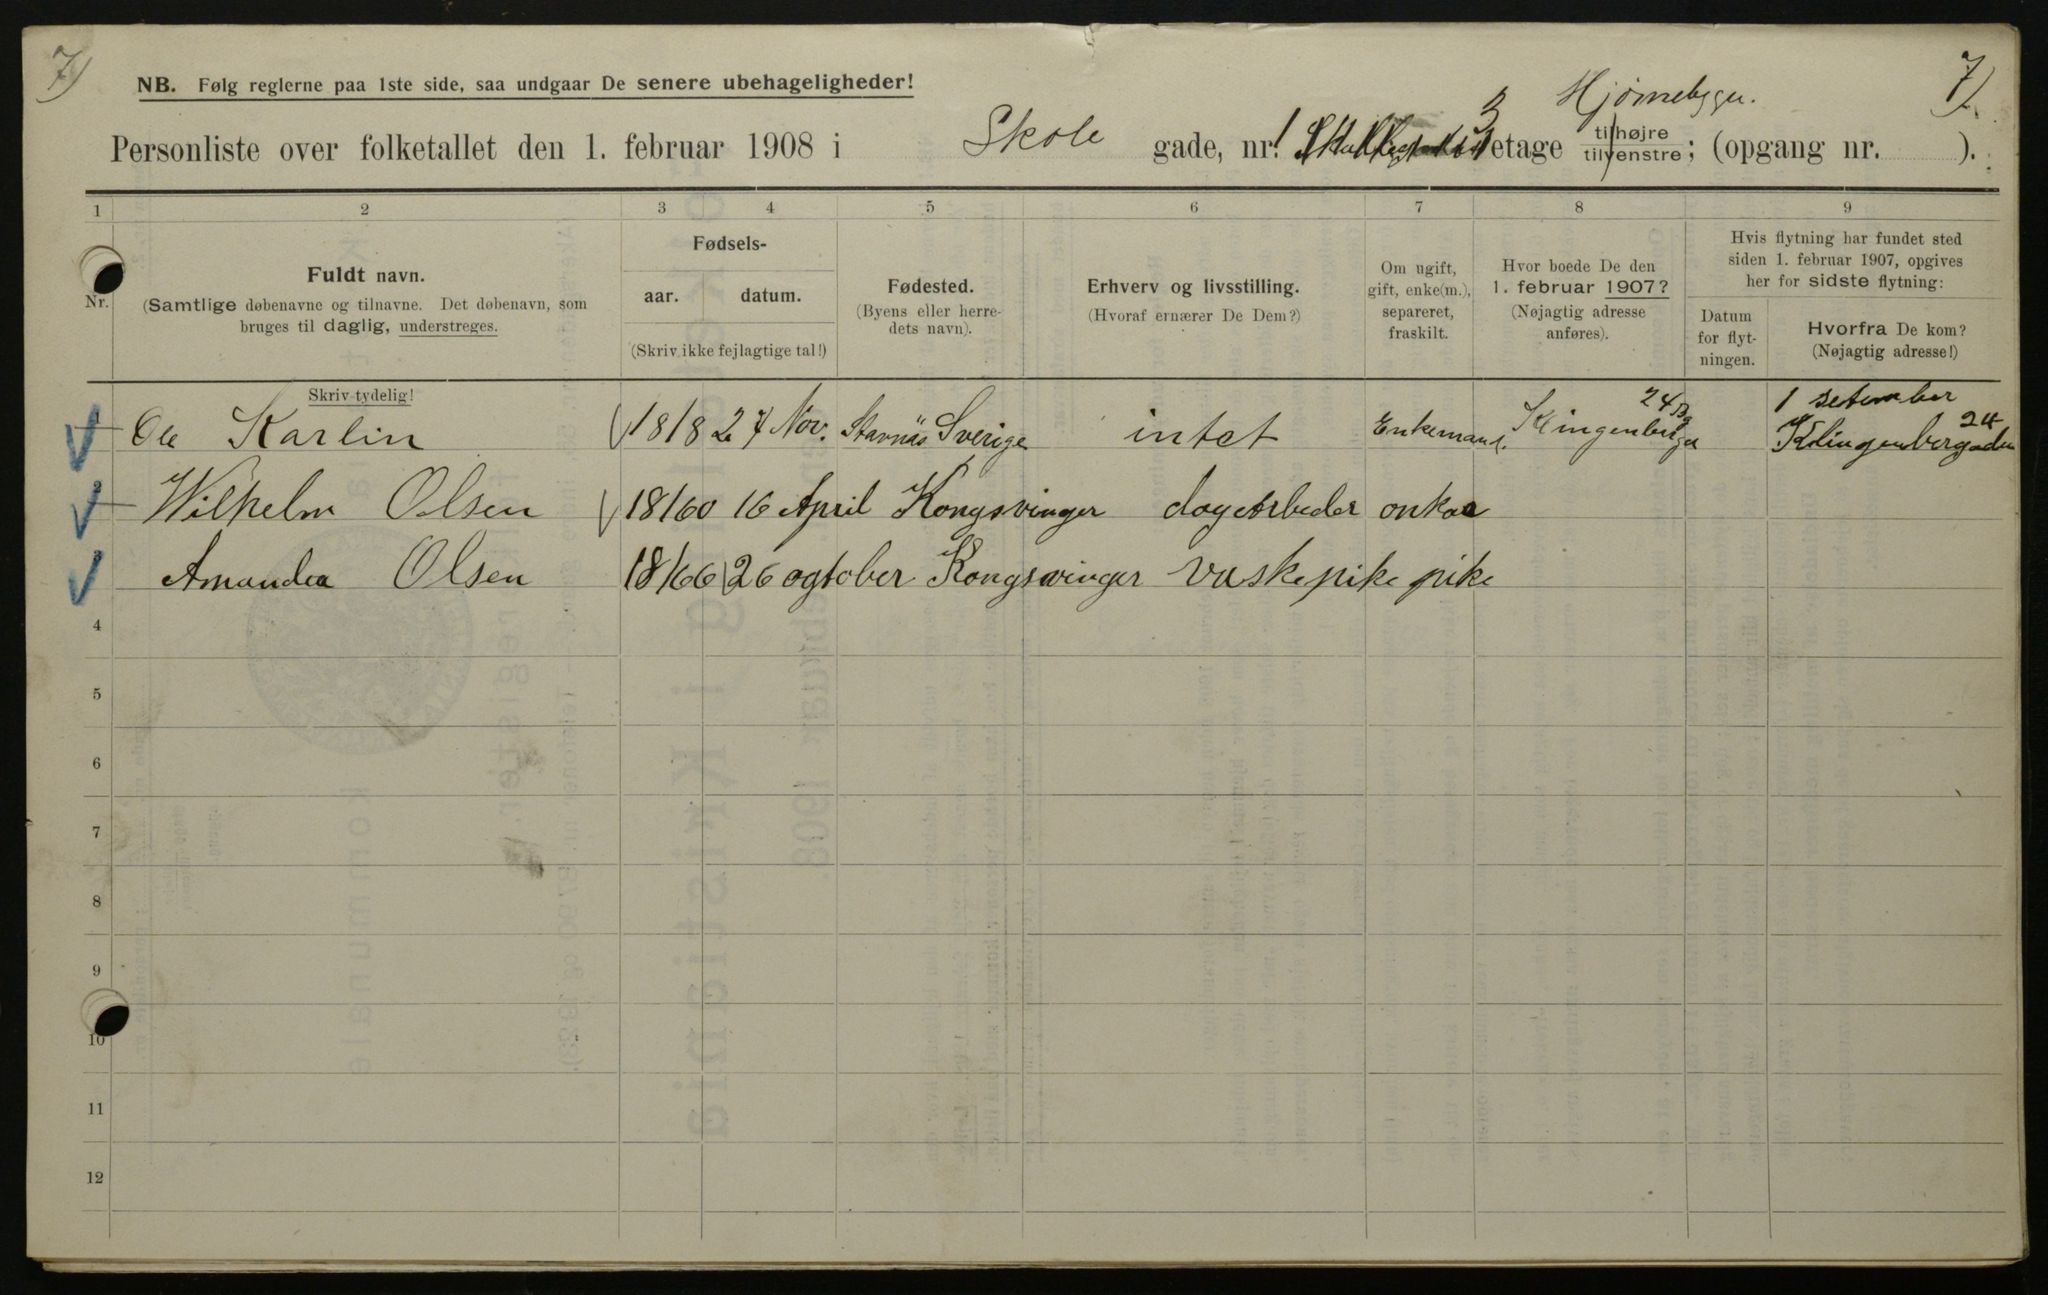 7)
NB. Følg reglerne paa 1ste side, saa undgaar De senere ubehageligheder!
Hjørnebygn. 7)
Personliste over folketallet den 1. februar 1908 i Skole gade, nr. 1 3 etage tilhøjre tilvenstre; (opgang nr. ).
1 2 3 4 5 6 7 8 9
Nr.
Fuldt navn.
(Samtlige døbenavne og tilnavne. Det døbenavn, som
bruges til daglig, understreges.
Skriv tydelig!
Fødsels-
aar. datum.
(Skriv ikke fejlagtige tal!)
Fødested.
(Byens eller herre-
dets navn).
Erhverv og livsstilling.
(Hvoraf ernærer De Dem?)
Om ugift,
gift, enke(m.),
separeret,
fraskilt.
Hvor boede De den
1. februar 1907?
(Nøjagtig adresse
anføres).
Hvis flytning har fundet sted
siden 1. februar 1907, opgives
her for sidste flytning:
Datum
for flyt-
ningen.
Hvorfra De kom?
(Nøjagtig adresse!)
1 Ole Karlin 1818 27 Nov. Stavnäs Sverige intet Enkemand. Klingenberg 24 1 setember Klingenbergaden 24
2 Wilhelm Olsen 1860 16 April Kongsvinger dagarbeder
3 Amanda Olsen 1866 26 ogtober Kongsvinger vaskepike pike
4
5
6
7
8
9
10
11
12